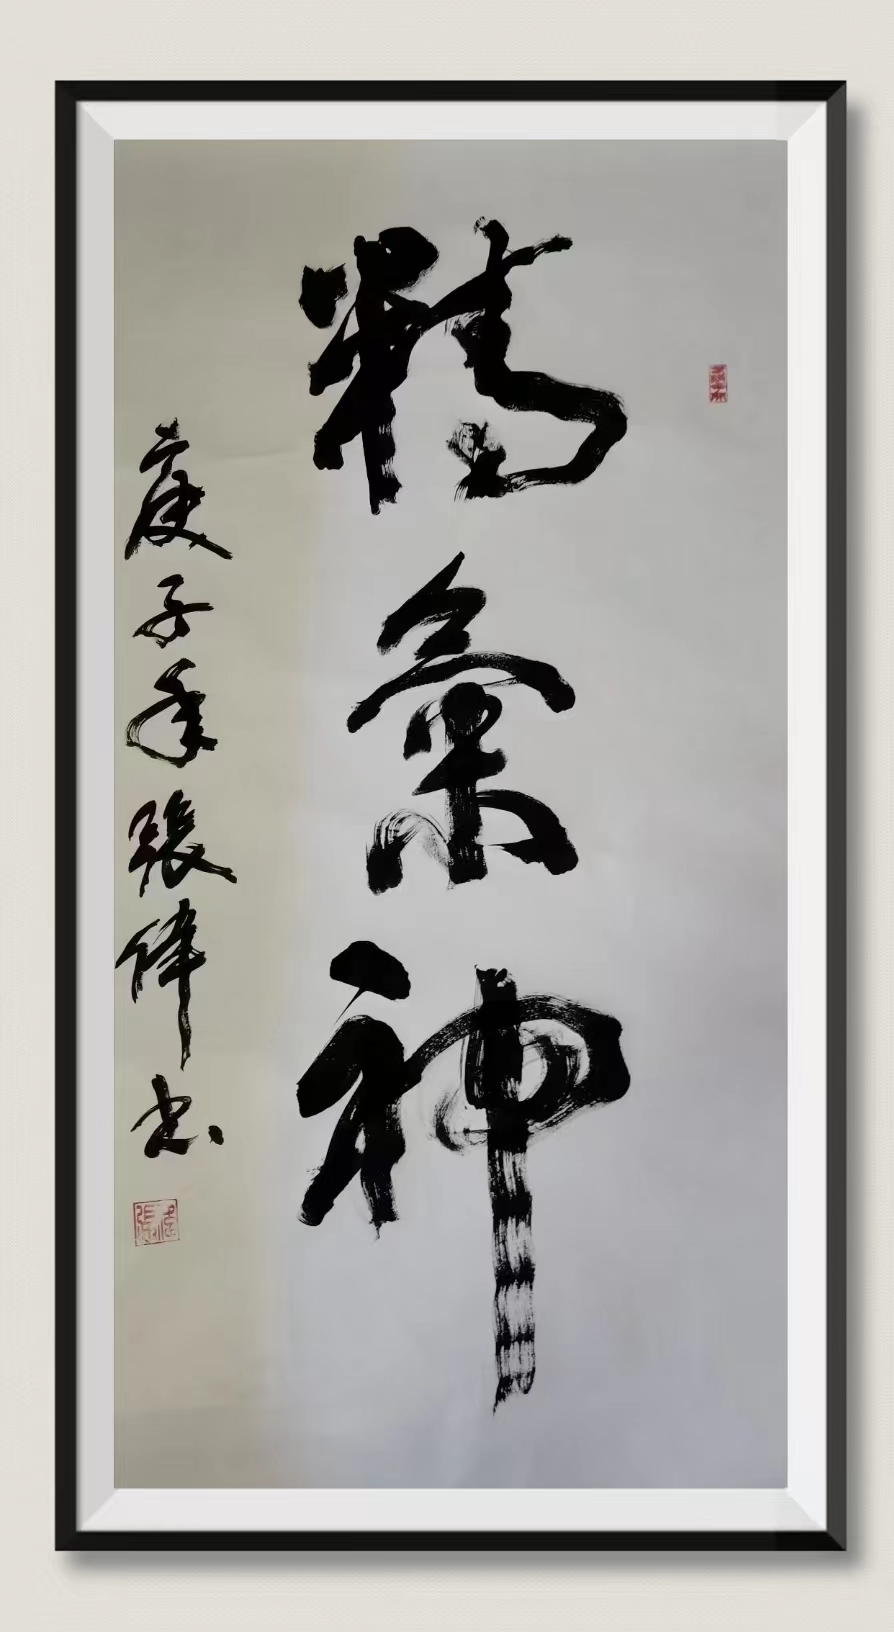 精氣神
庚子年張偉書